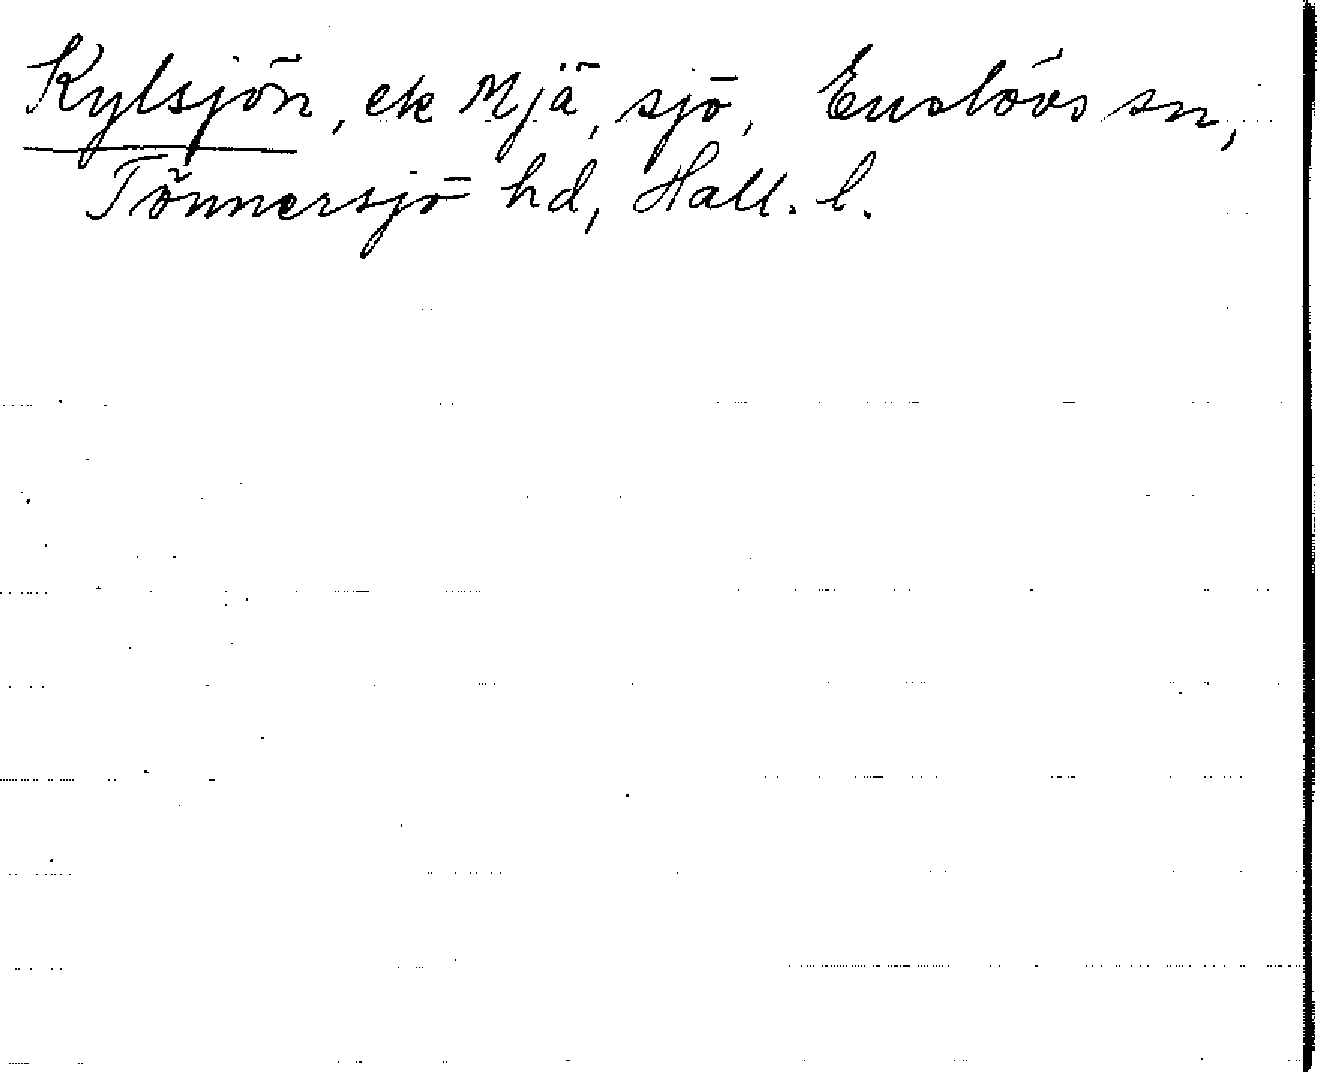 Kylsjön, ek Mjä, sjö, Enslövs sn,
Tönnersjö hd, Hall. l.